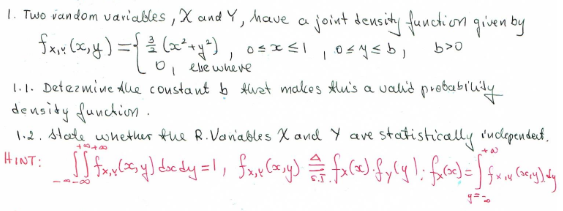 1. Two random variables, X and Y, have a joint density function given by
f_{X,Y}(x,y) = { 3/2 (x²+y²), 0≤x≤1, 0≤y≤b, b>0
0, elsewhere
1.1. Determine the constant b that makes this a valid probability
density function.
1.2. State whether the R.Variables X and Y are statistically independent.
HINT: ∫_{-∞}^{+∞}∫_{-∞}^{+∞} f_{X,Y}(x,y) dx dy = 1, f_{X,Y}(x,y) ≜ f_X(x).f_Y(y); f_X(x) = ∫_{y=-∞}^{+∞} f_{X,Y}(x,y) dy